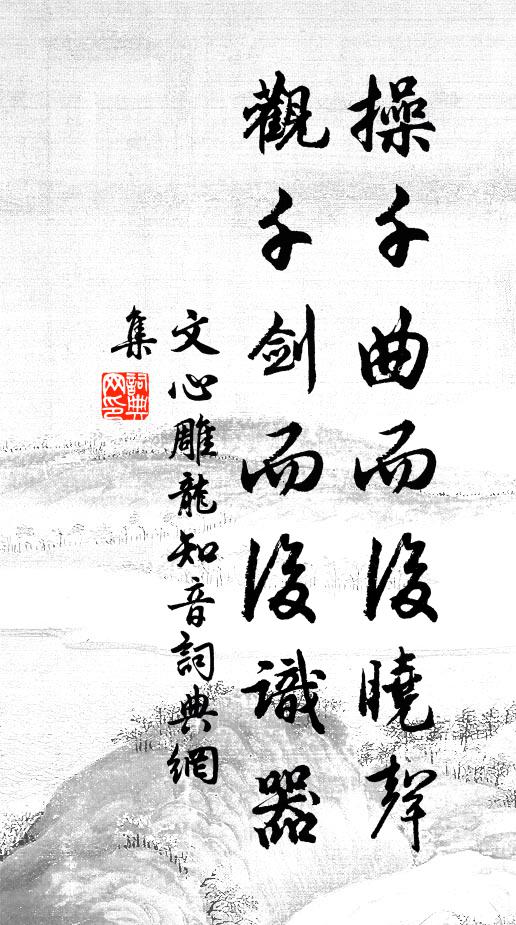 操千曲而後曉聲
觀千劍而後識器
文心雕龍知音詞典網
集
詞典
网印